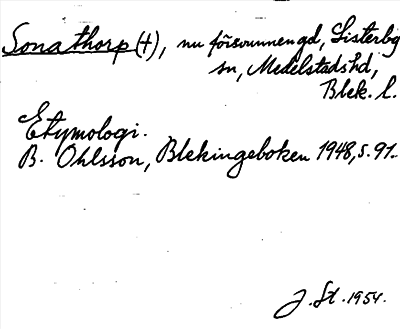 Sonathorp (†), nu försvunnen gd, Listerby
sn, Medelstadshd,
Blek. l.
Etymologi.
B. Ohlsson, Blekingeboken 1948, s. 91.
J. St. 1954.